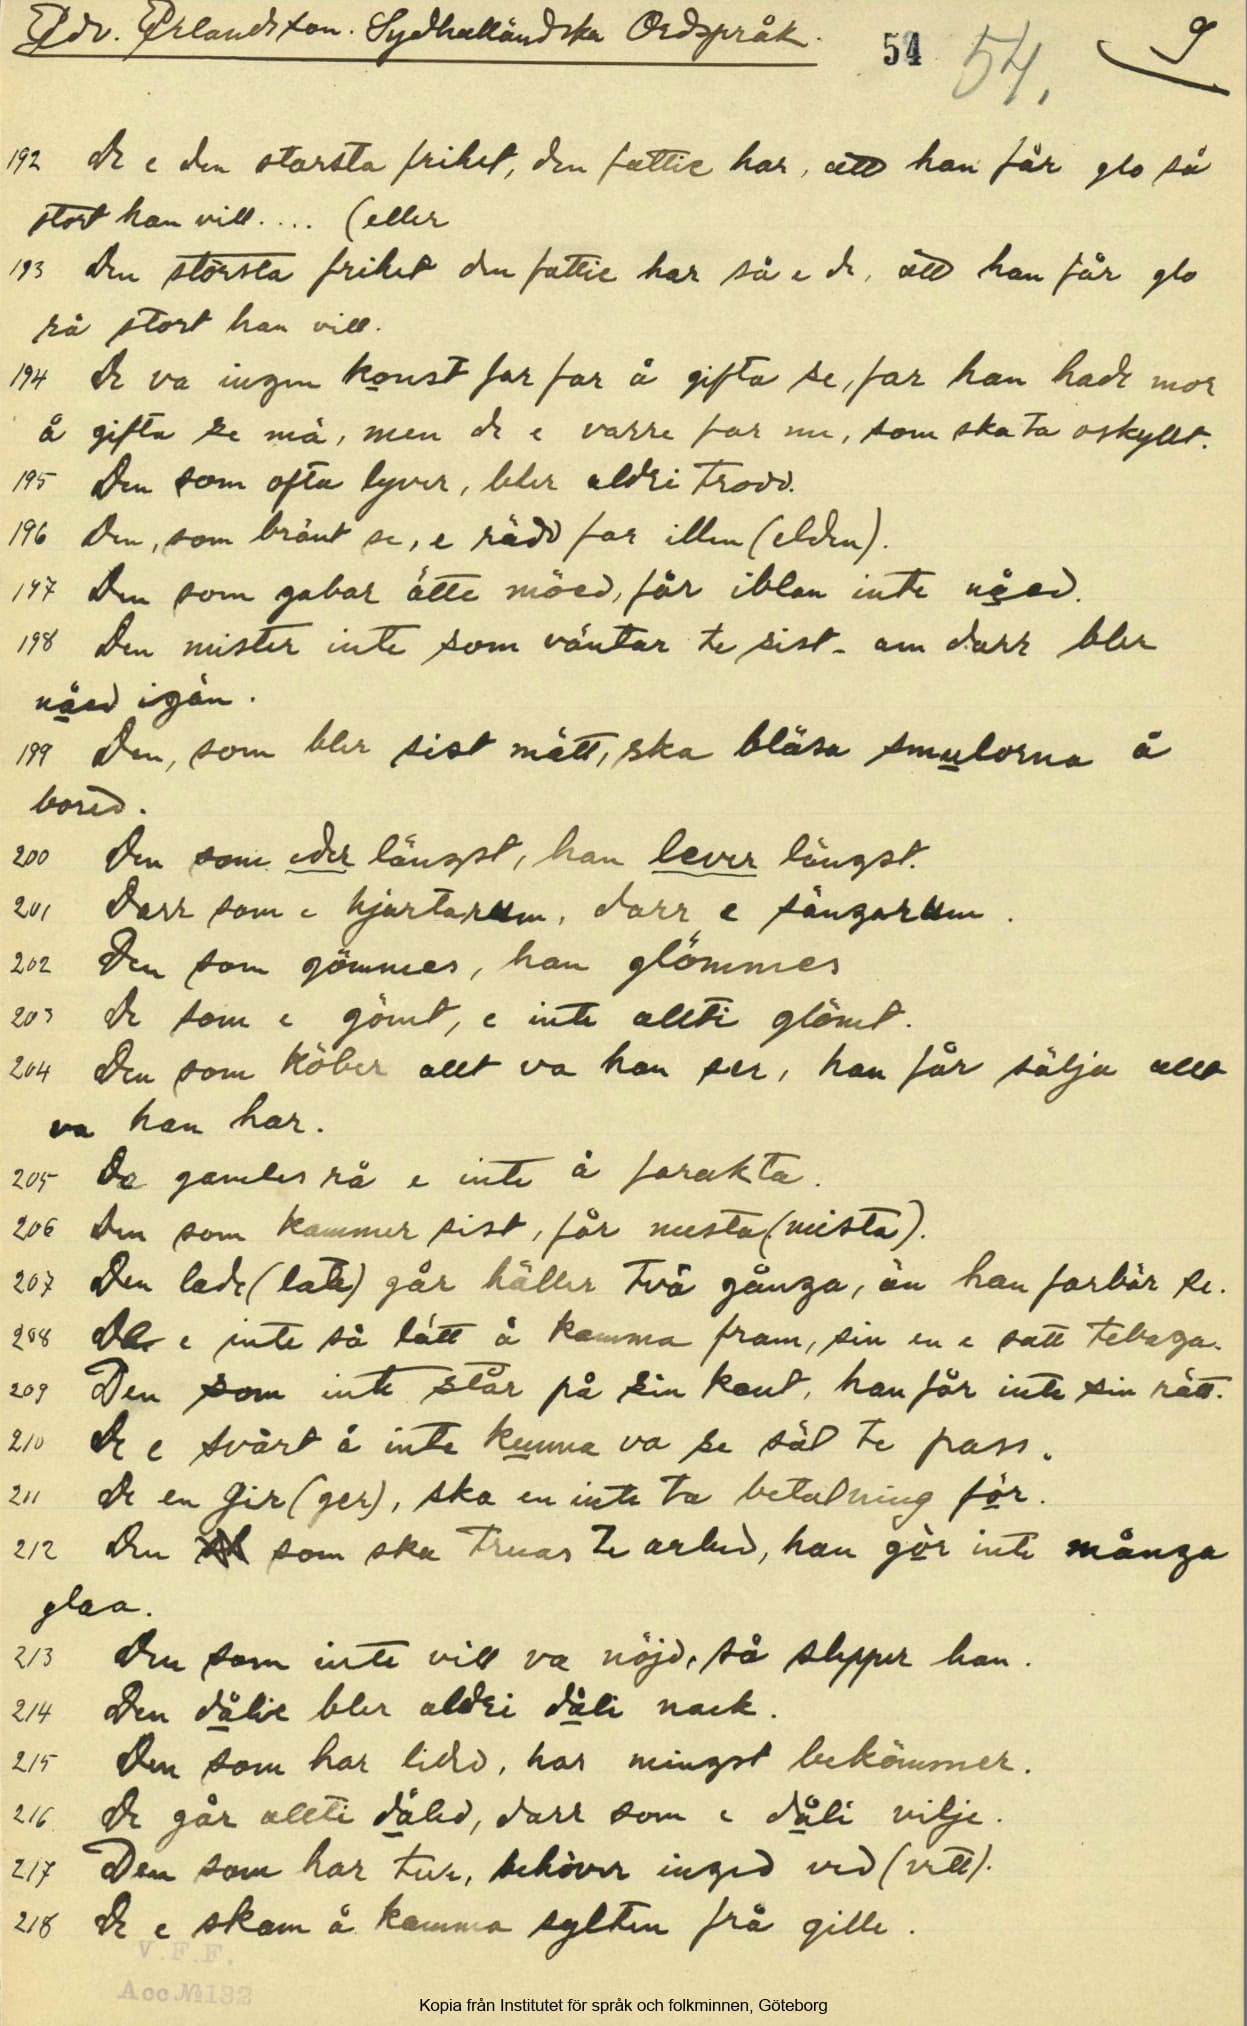 Edv. Erlandsson. Sydhalländska Ordspråk. 54 54. 9
192 De e den starsta frihet, den fattie har, att han får glo så
stort han vill.... (eller
193 Den största frihet den fattie har så e de, att han får glo
så stort han vill.
194 De va ingen konst far far å gifta se, far han hade mor
å gifta se mä, men de e varre far me, som ska ta oskyllt.
195 Den som ofta lyver, bler aldri trodd.
196 Den, som bränt se, e rädd far illen (elden).
197 Den som gabar ätte möed, får iblan inte nåed.
198 Den mister inte som väntar te sist - am darr bler
nåed igän.
199 Den, som bler sist mätt, ska bläsa smulorna å
bored.
200 Den som eder längst, han lever längst.
201 Darr som e hjartarum, darr e sängarum.
202 Den som gömmer, han glömmer
203 De som e gömt, e inte allti glömt.
204 Den som köber allt va han ser, han får sälja allt
va han har.
205 De gamles rå e inte å farakta.
206 Den som kammer sist, får mesta (mista).
207 Den lade (late) går häller två gånga, än han farbär se.
208 De e inte så lätt å kamma fram, sin en e satt tebaga.
209 Den som inte står på sin kant, han får inte sin rätt.
210 De e svårt å inte kunna va se säl te pass.
211 De en gir (ger), ska en inte ta betalning för.
212 Den som ska truas te arbed, han gör inte många
glaa.
213 Den som inte vill va nöjd, så slepper han.
214 Den dålie bler aldri dåli nack.
215 Den som har lided, har mingst bekömmer.
216 De går allti dåled, darr som e dåli vilje.
217 Den som har tur, behöver inged ved (vett).
218 De e skam å kamma sylten frå gille.
V.F.F.
Acc № 132
Kopia från Institutet för språk och folkminnen, Göteborg